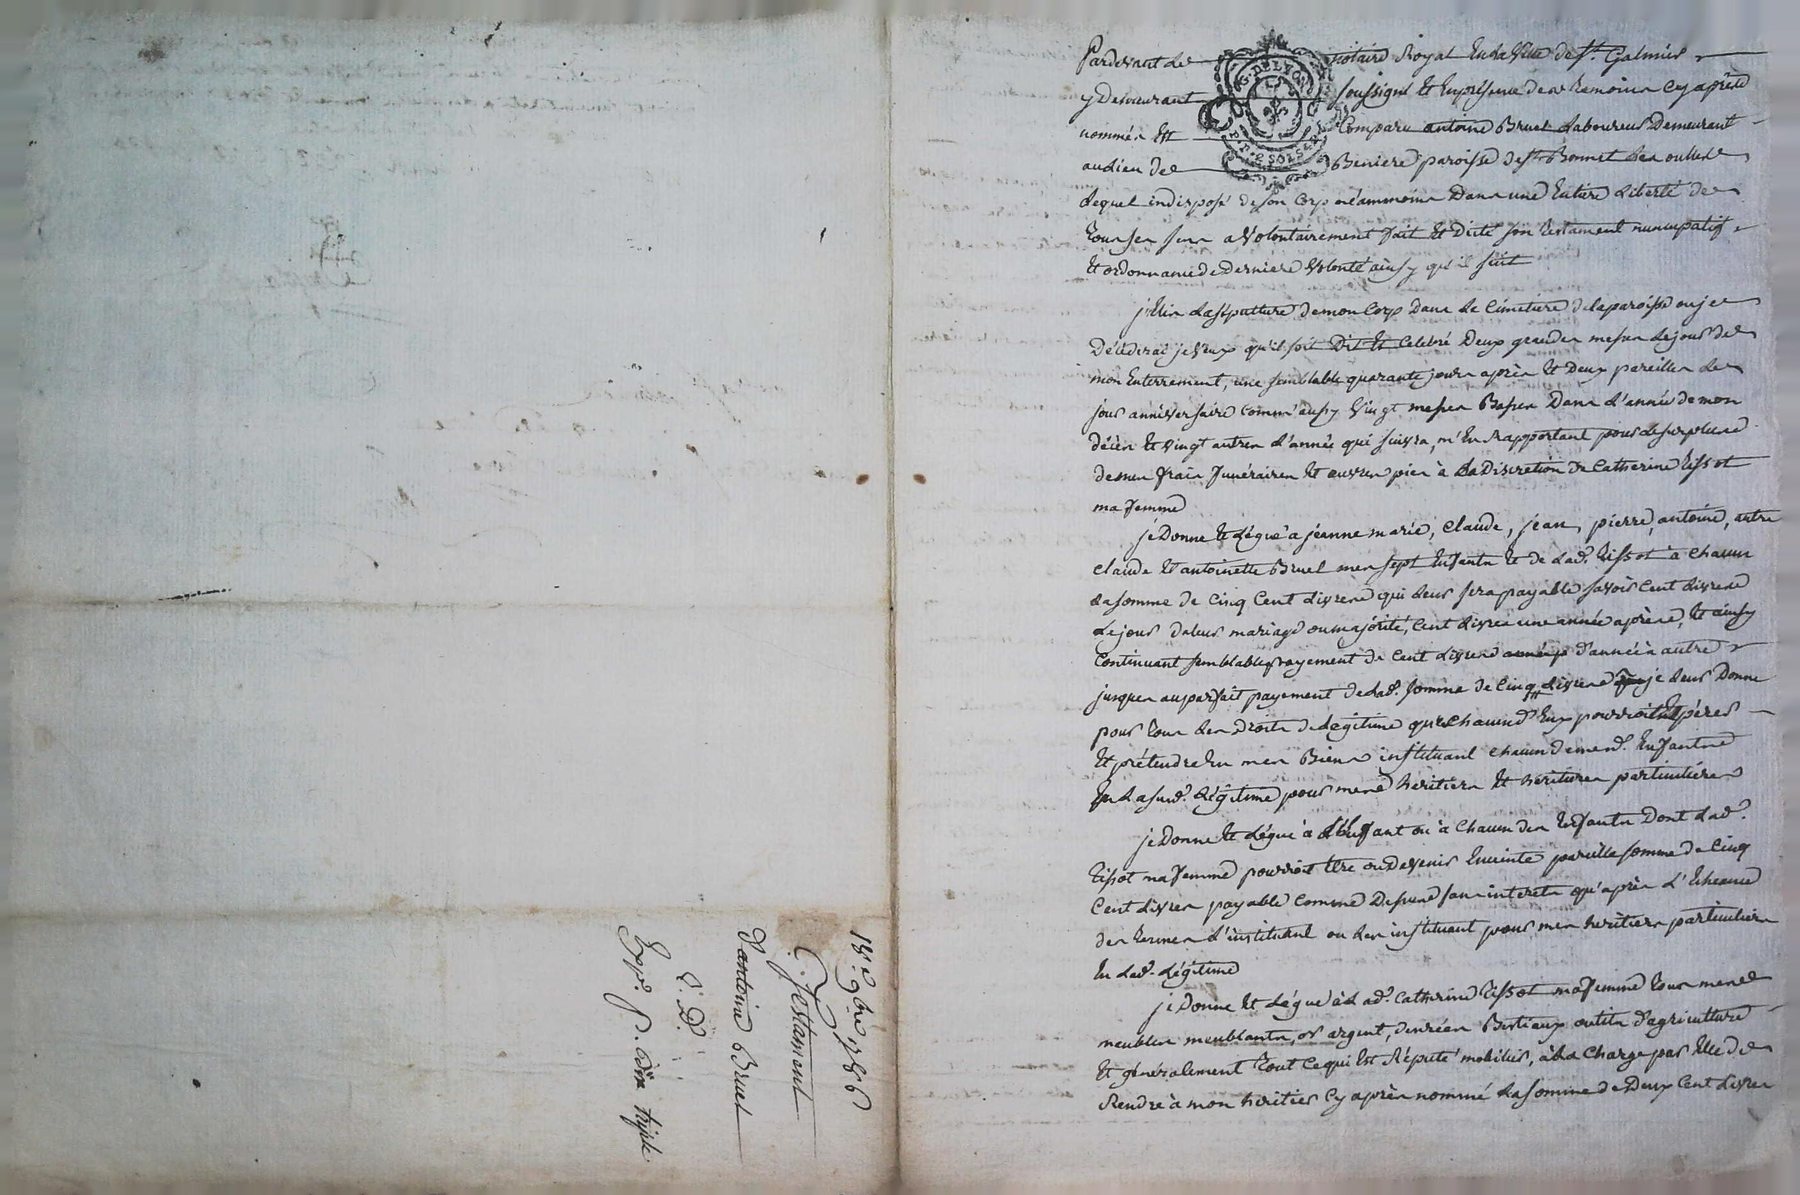 18e 9bre 1786
Testament
d'antoine Bruel
C. D.
Expé. P. Don triple
G. DE LYON
Pardevant le notaire Royal En la Ville de St. Galmier
y Demeurant soussigné Et En présence de temoins Cy après
nommés Est Comparu antoine Bruel Laboureur Demeurant
au lieu de paroisse de St. Bonnet Les oulles
Lequel indisposé de son Corp néammoins Dans une Entiere Liberté de
tous ses sens a Volontairement fait Et Dicté son testament nuncupatif
Et ordonnance de Derniere Volonté ainsy qu'il suit
j'Elis La sepulture de mon Corp Dans Le Cimetiere de la paroisse ou je
Decéderai je Veux qu'il soit Dit Et Celebré Deux grandes messes le jour de
mon Enterrement, une semblable quarante jours après Et Deux pareilles Le
jour anniversaire comm'aussy Vingt messes Basses Dans L'année de mon
décès Et Vingt autres L'année qui suivra, m'En Rapportant pour Le surplus
de mes frais funéraires Et œuvres pies à La Discretion de Catherine tissot
ma femme
je Donne Et Légue à jeanne marie, Claude, jean, pierre, antoine, autre
Claude Et antoinette Bruel mes sept Enfants Et de Lad. tissot à chacun
La somme de Cinq Cent Livres qui Leur sera payable savoir Cent Livres
Le jour de Leur mariage ou majorité, Cent Livres une année après, Et ainsy
Continuant semblable payement de Cent Livres d'année à autre
jusques au parfait payement de Lad. somme de Cinq ct Livres que je Leur Donne
pour tous Les Droits de Legitime que Chacun d'Eux pourroit Espérer
Et prétendre En mes Biens instituant chacun de mesd. Enfants
En La susd. Légitime pour mes heritiers Et heritieres particulières
je Donne Et Légue à L'Enfant ou à Chacun des Enfants Dont Lad.
tissot ma femme pourroit être ou Devenir Enceinte pareille somme de Cinq
Cent Livres payable Comme Dessus sans interets qu'après L'Echeance
des termes L'instituant ou Les instituant pour mes heritiers particuliers
En Lad. Légitime
je Donne Et Légue à Lad. Catherine tissot ma femme tous mes
meubles meublants, or argent, denrées Bestiaux outils d'agriculture
Et généralement tout Ce qui Est Réputé mobilier, à La Charge par Elle de
Rendre à mon heritier Cy après nommé La somme de Deux Cent Livres